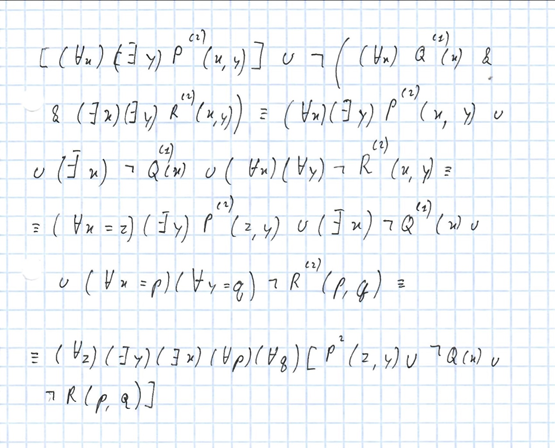 [(∀x)(∃y) P⁽²⁾(x, y)] ∪ ¬((∀x) Q⁽¹⁾(x) &
& (∃x)(∃y) R⁽²⁾(x,y)) ≡ (∀x)(∃y) P⁽²⁾(x, y) ∪
∪ (∃x) ¬Q⁽¹⁾(x) ∪ (∀x)(∀y) ¬R⁽²⁾(x, y) ≡
≡ (∀x = z)(∃y) P⁽²⁾(z, y) ∪ (∃x) ¬Q⁽¹⁾(x) ∪
∪ (∀x = p)(∀y = q) ¬R⁽²⁾(p, q) ≡
≡ (∀z)(∃y)(∃x)(∀p)(∀q) [P²(z, y) ∪ ¬Q(x) ∪
¬R(p, q)]